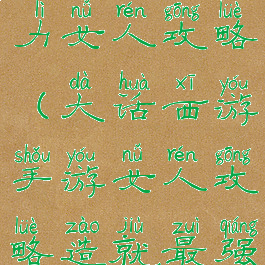 lì nǚ rén gōng lüè
力女人攻略
dà huà xī yóu
（大话西游
shǒu yóu nǚ rén gōng
手游女人攻
lüè zào jiù zuì qiáng
略造就最强